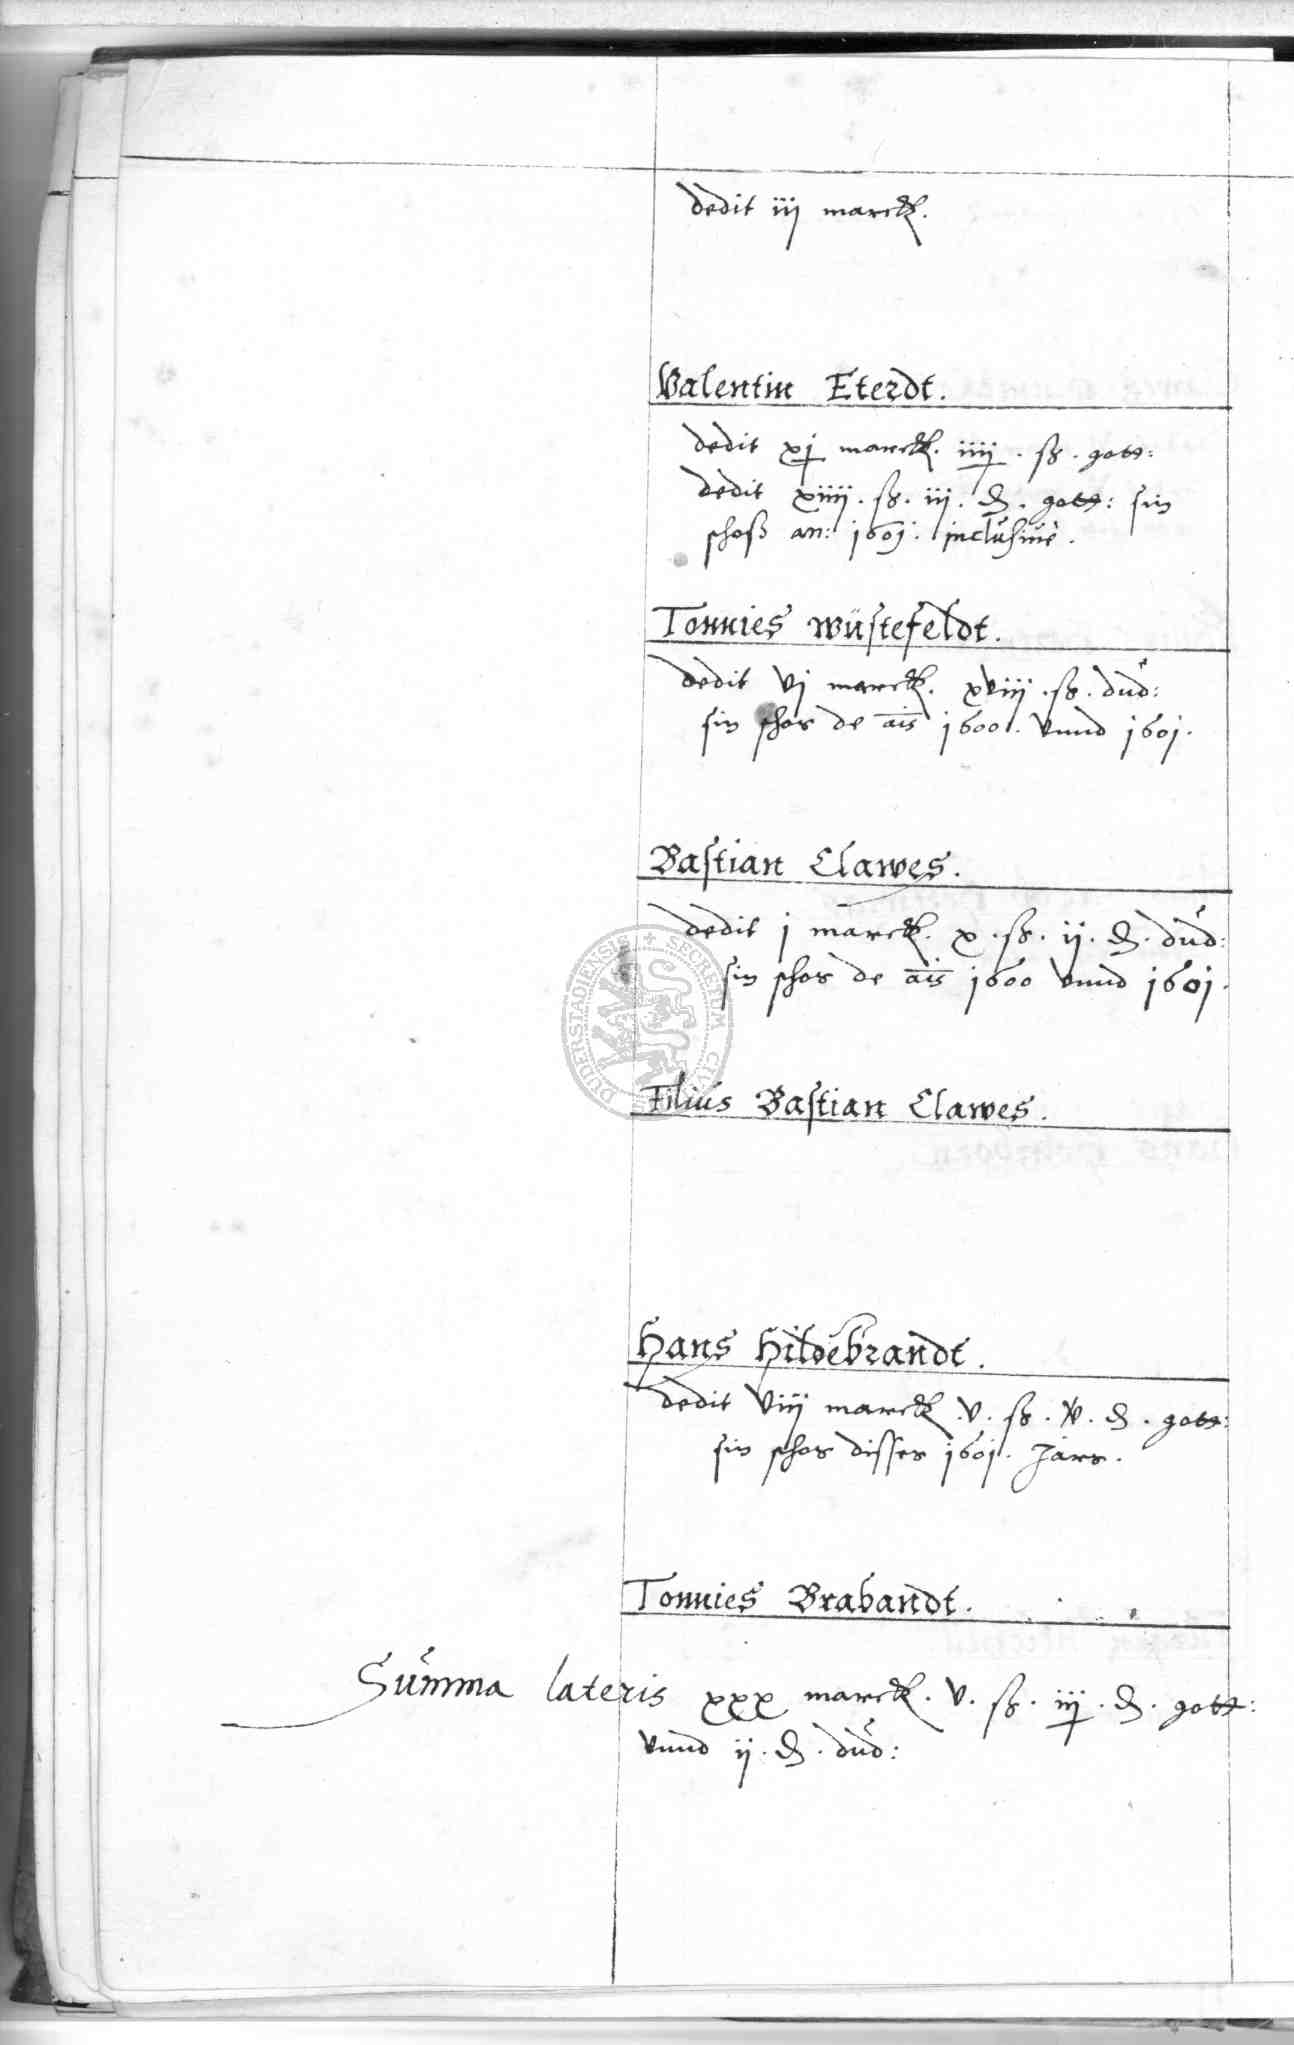 dedit iij marck.
Valentin Eterdt.
dedit xj marck. iiij. ß. gott:
dedit xiiij. ß. iij. ₰. gott: sin
schoß an: 1601. inclusiuè.
Tonnies wüstefeldt.
dedit vj marck. xviij. ß. dud:
sin schos de ais 1600. vnnd 1601.
Bastian Clawes.
dedit j marck. x. ß. ij. ₰. dud:
sin schos de ais 1600 vnnd 1601.
Filius Bastian Clawes.
Hans Hildebrandt.
dedit viij marck. v. ß. v. ₰. gott:
sin schos disses 1601. Jars.
Tonnies Brabandt.
Summa lateris xxx marck. v. ß. iij. ₰. gott:
vnnd ij. ₰. dud:
DUDERSTADIENSIS + SECRETUM CIVI